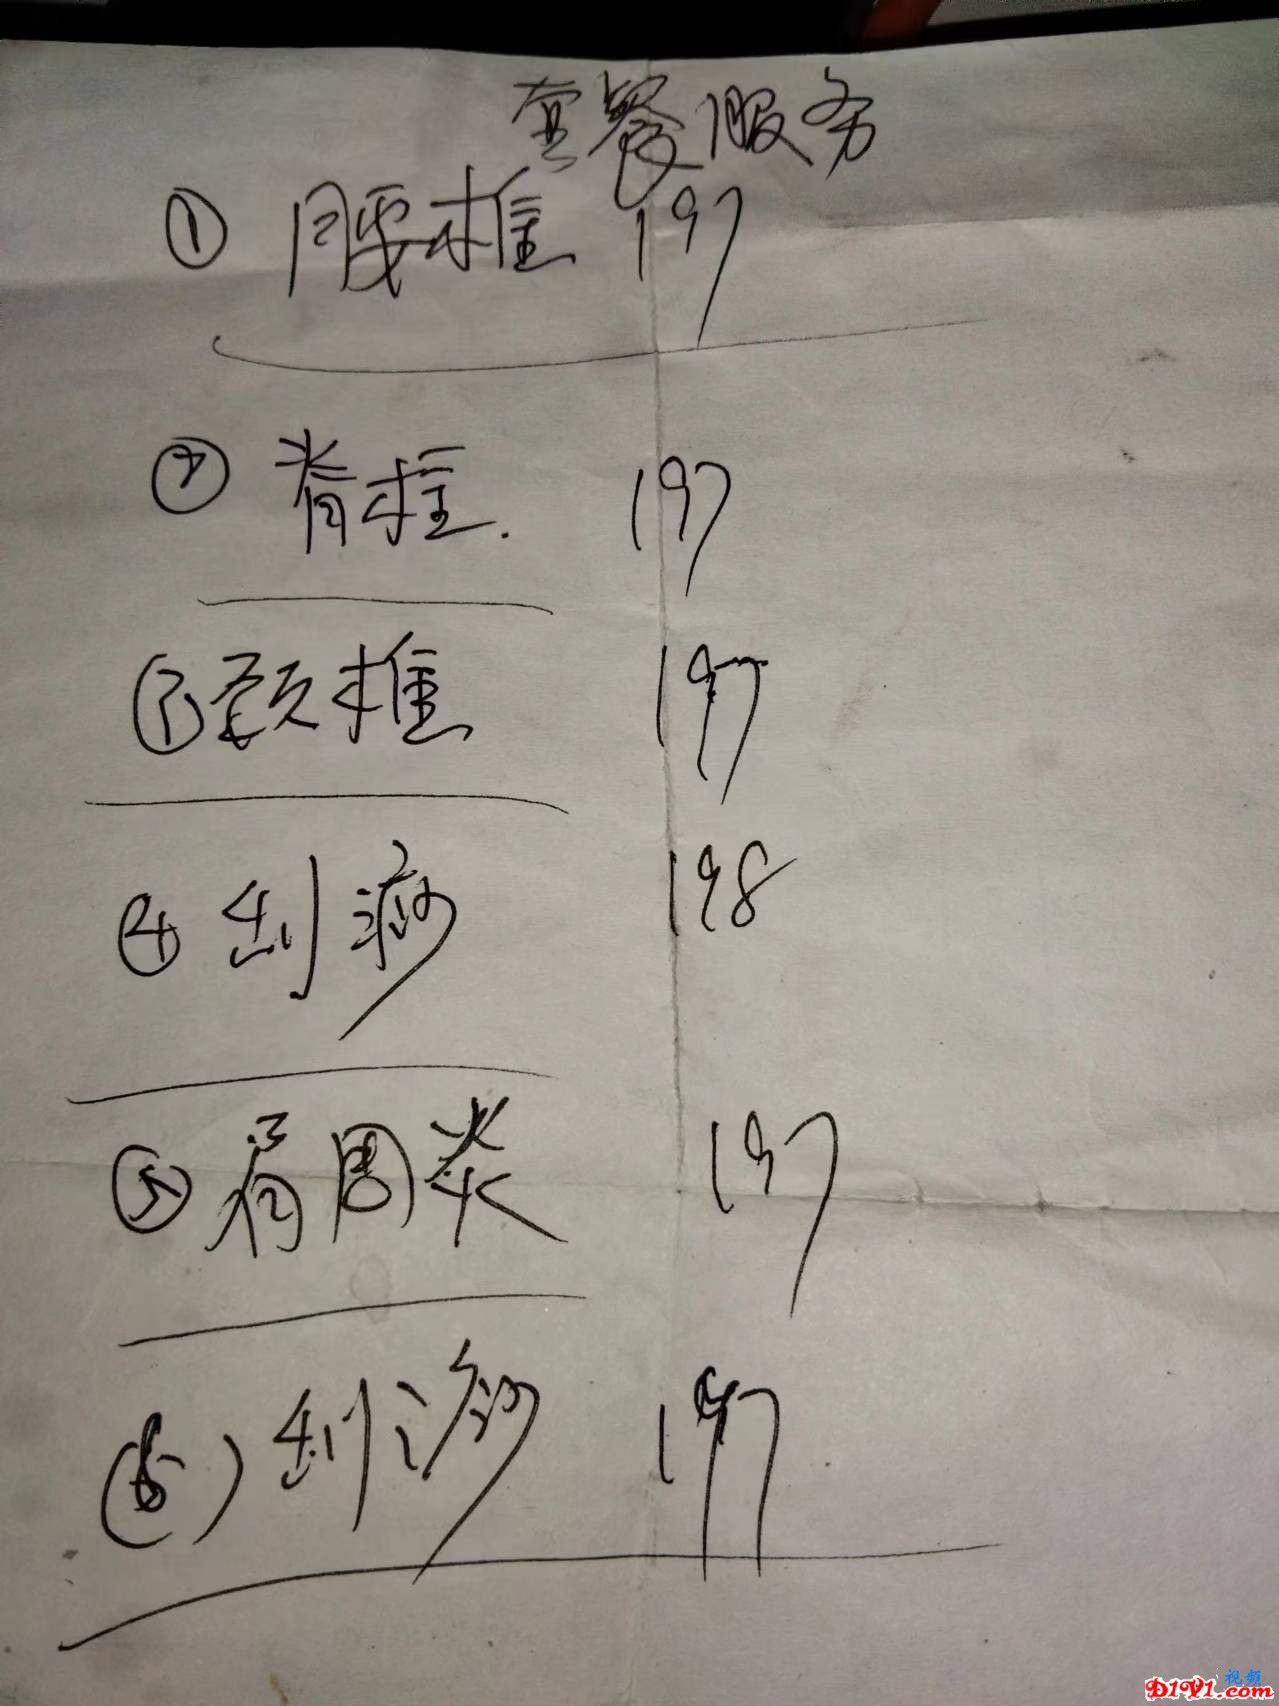 套餐服务
① 腰椎 197
② 脊柱. 197
③ 颈椎 197
④ 刮痧 198
⑤ 肩周炎 197
(6) 刮痧 197
视频
D1V1.com